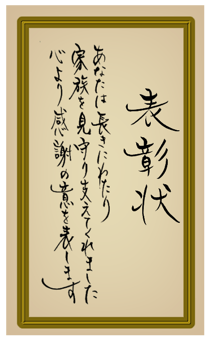 表彰状
あなたは長きにわたり
家族を見守り支えてくれました
心より感謝の意を表します